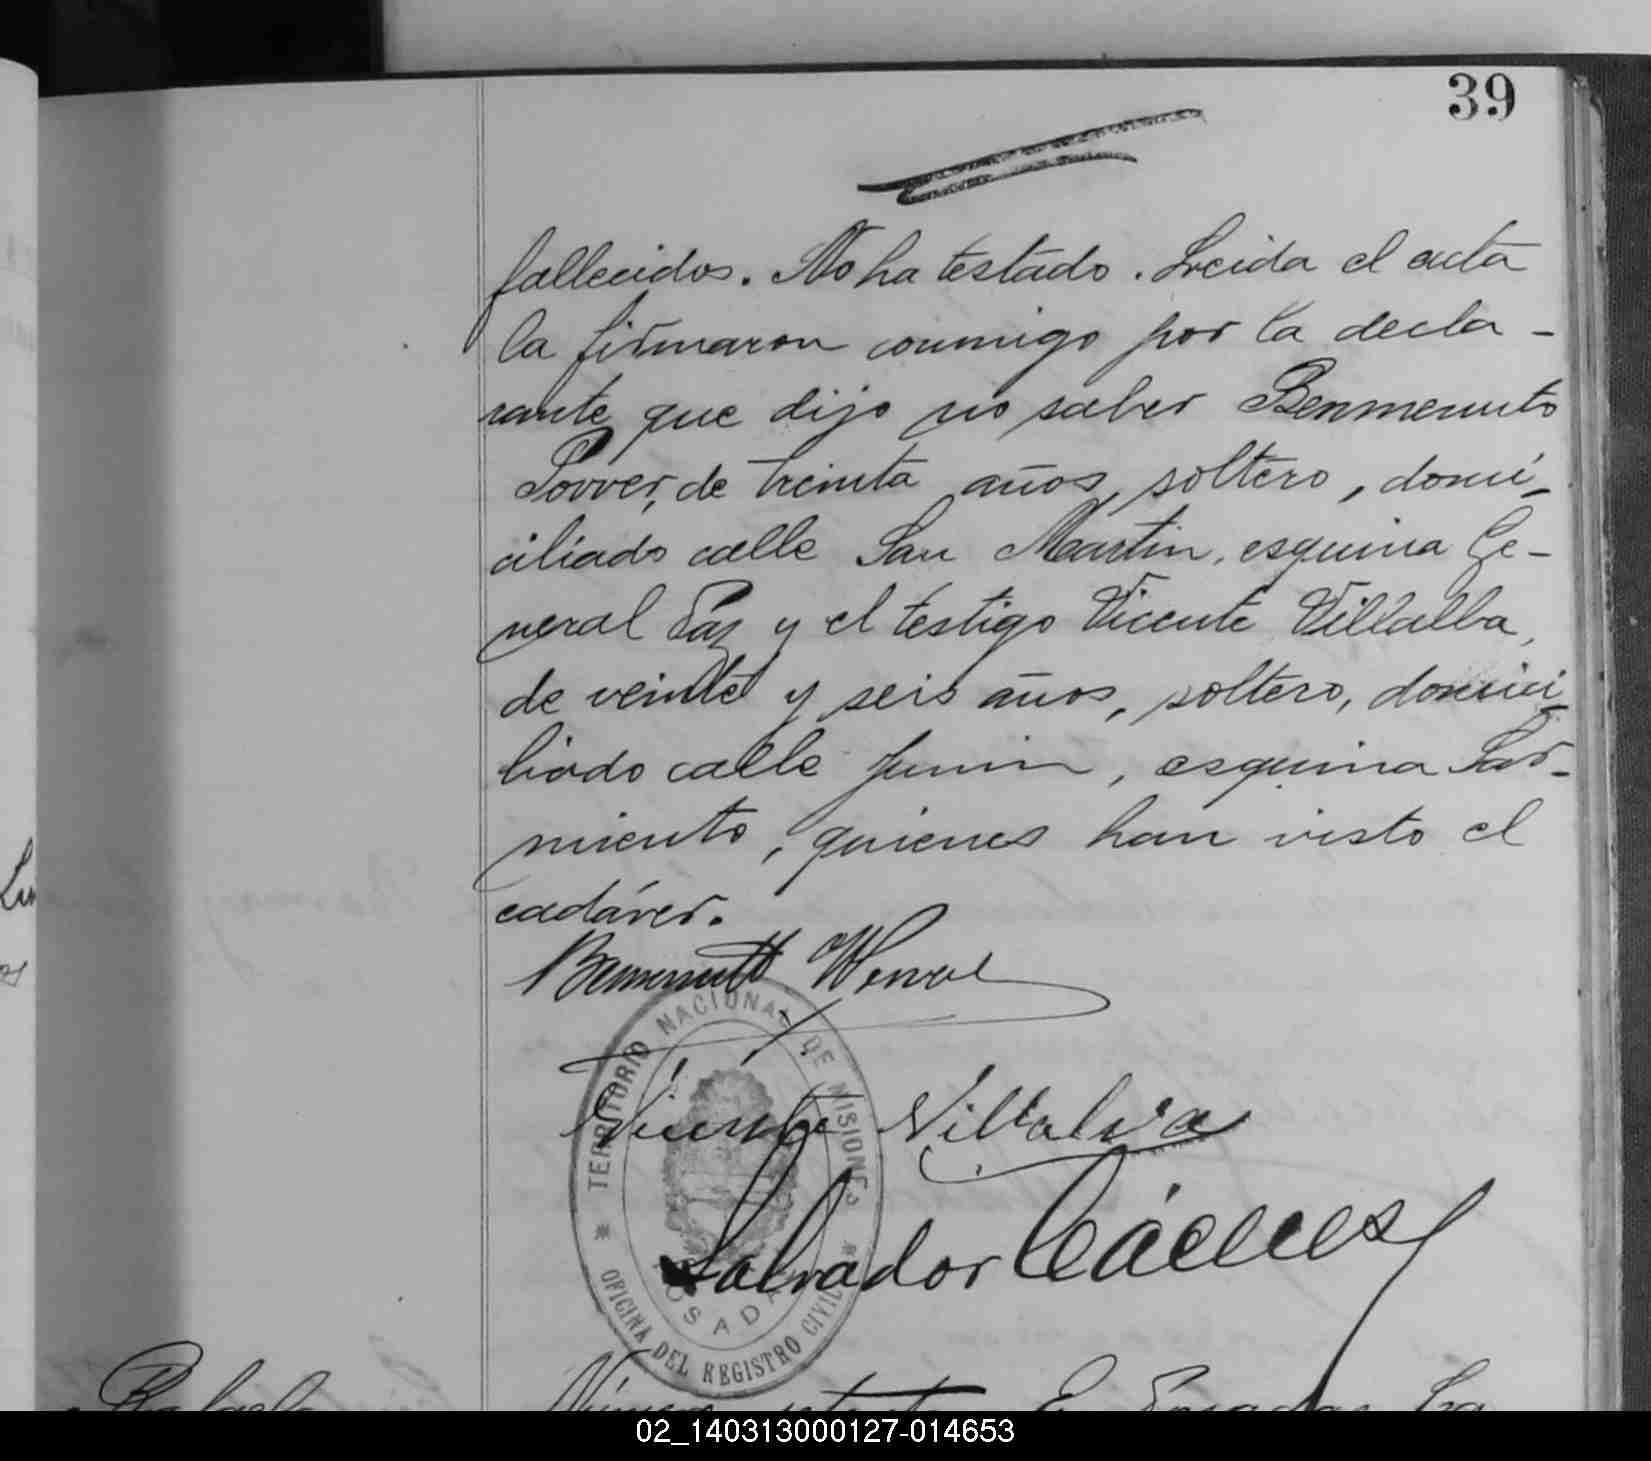 39
fallecidos. No ha testado. Leida el acta
la firmaron conmigo por la decla-
rante que dijo no saber Benmenuto
de treinta años, soltero, domi-
ciliado calle San Martin, esquina Ge-
neral Paz y el testigo Vicente Villalba,
de veinte y seis años, soltero, domici-
liado calle Junin, esquina Sar-
miento, quienes han visto el
cadáver.
Vicente Villalva
Salvador Cáceres
TERRITORIO NACIONAL DE MISIONES
POSADAS
OFICINA DEL REGISTRO CIVIL
Rafaela
Número setenta En Posadas, Ca
02_140313000127-014653